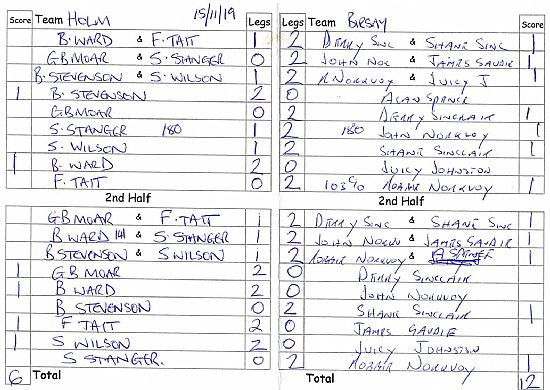 Score Team HOLM 15/11/19 Legs Legs Team BIRSAY Score
B. WARD & F. TAIT 1 2 DERRY SINC & SHANE SINC 1
GB MOAR & S. STANGER 0 2 JOHN NOR & JAMES GAUDIE 1
B. STEVENSON & S. WILSON 1 2 R NORKVOY & JUICY J 1
1 B. STEVENSON 2 0 ALAN SPENCE
GB MOAR 0 2 DERRY SINCLAIR 1
S. STANGER 180 1 2 180 JOHN NORKVOY 1
S. WILSON 1 2 SHANE SINCLAIR 1
1 B. WARD 2 0 JUICY JOHNSTON
F. TAIT 0 2 103 C/O ROBBIE NORKVOY 1
2nd Half 2nd Half
GB MOAR & F. TAIT 1 2 DERRY SINC & SHANE SINC 1
B WARD 141 & S. STANGER 1 2 JOHN NORKV & JAMES GAUDIE 1
B STEVENSON & S WILSON 1 2 ROBBIE NORKVOY & 1
1 GB MOAR 2 0 DERRY SINCLAIR
1 B WARD 2 0 JOHN NORKVOY
B STEVENSON 0 2 SHANE SINCLAIR 1
1 F TAIT 2 0 JAMES GAUDIE
1 S WILSON 2 0 JUICY JOHNSTON
S STANGER. 0 2 ROBBIE NORKVOY 1
6 Total Total 12